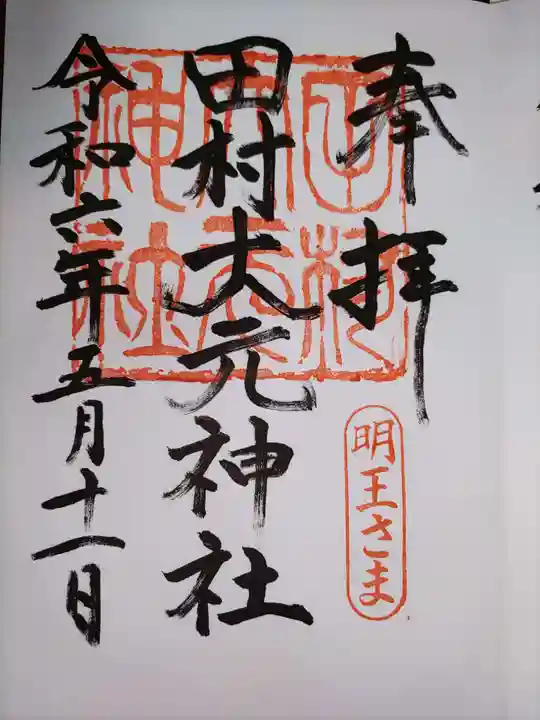 奉拝
明王さま
田村大元神社
田村大元神社
令和六年五月十一日